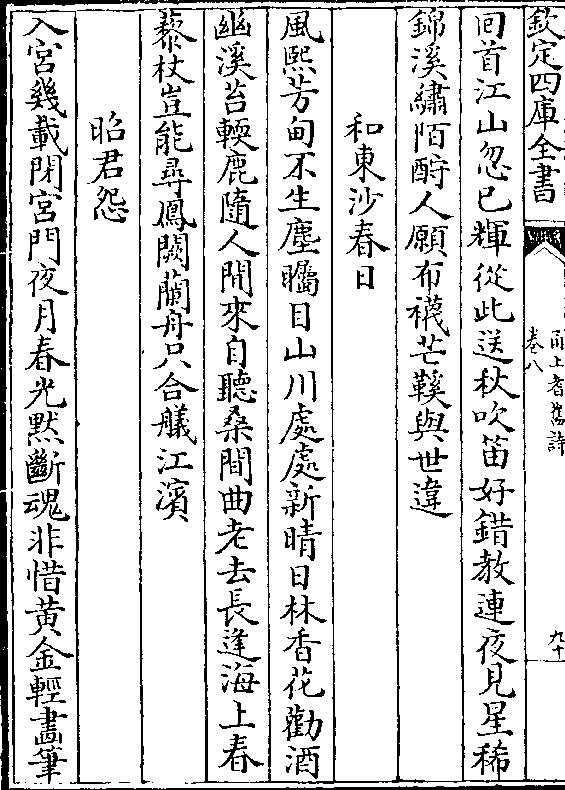 欽定四庫全書
甬上耆舊詩
卷八
九十
囘首江山忽已輝從此送秋吹笛好錯教連夜見星稀
錦溪繡陌酧人願布襪芒鞵與世違
和東沙春日
風熙芳甸不生塵矚目山川處處新晴日林香花勸酒
幽溪苔輭鹿隨人閒來自聽桑間曲老去長逢海上春
藜杖豈能尋鳳闕蘭舟只合艤江濱
昭君怨
入宮幾載閉宮門夜月春光黙斷魂非惜黄金輕畫筆